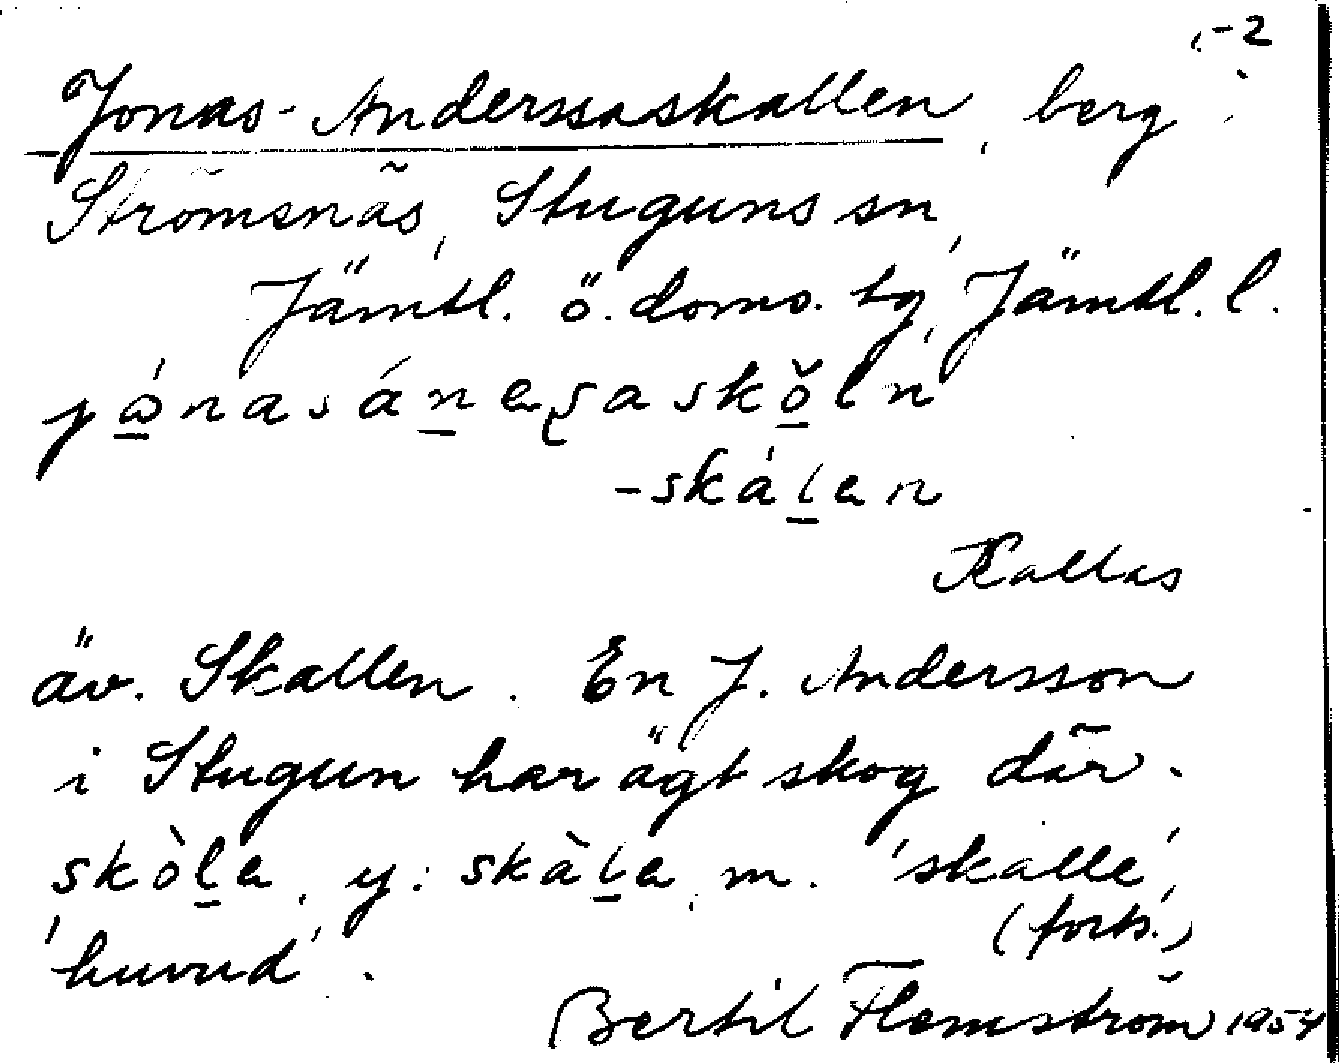 -2
Jonas-Anderssaskallen, berg i
Strömsnäs, Stuguns sn,
Jämtl. ö. doms. tg, Jämtl. l.
-skálen
Kallas
äv. Skallen. En J. Andersson
i Stugun har ägt skog där.
skòla, y: skàla, m. 'skalle',
'huvud'.
(forts.)
Bertil Flemström 1954